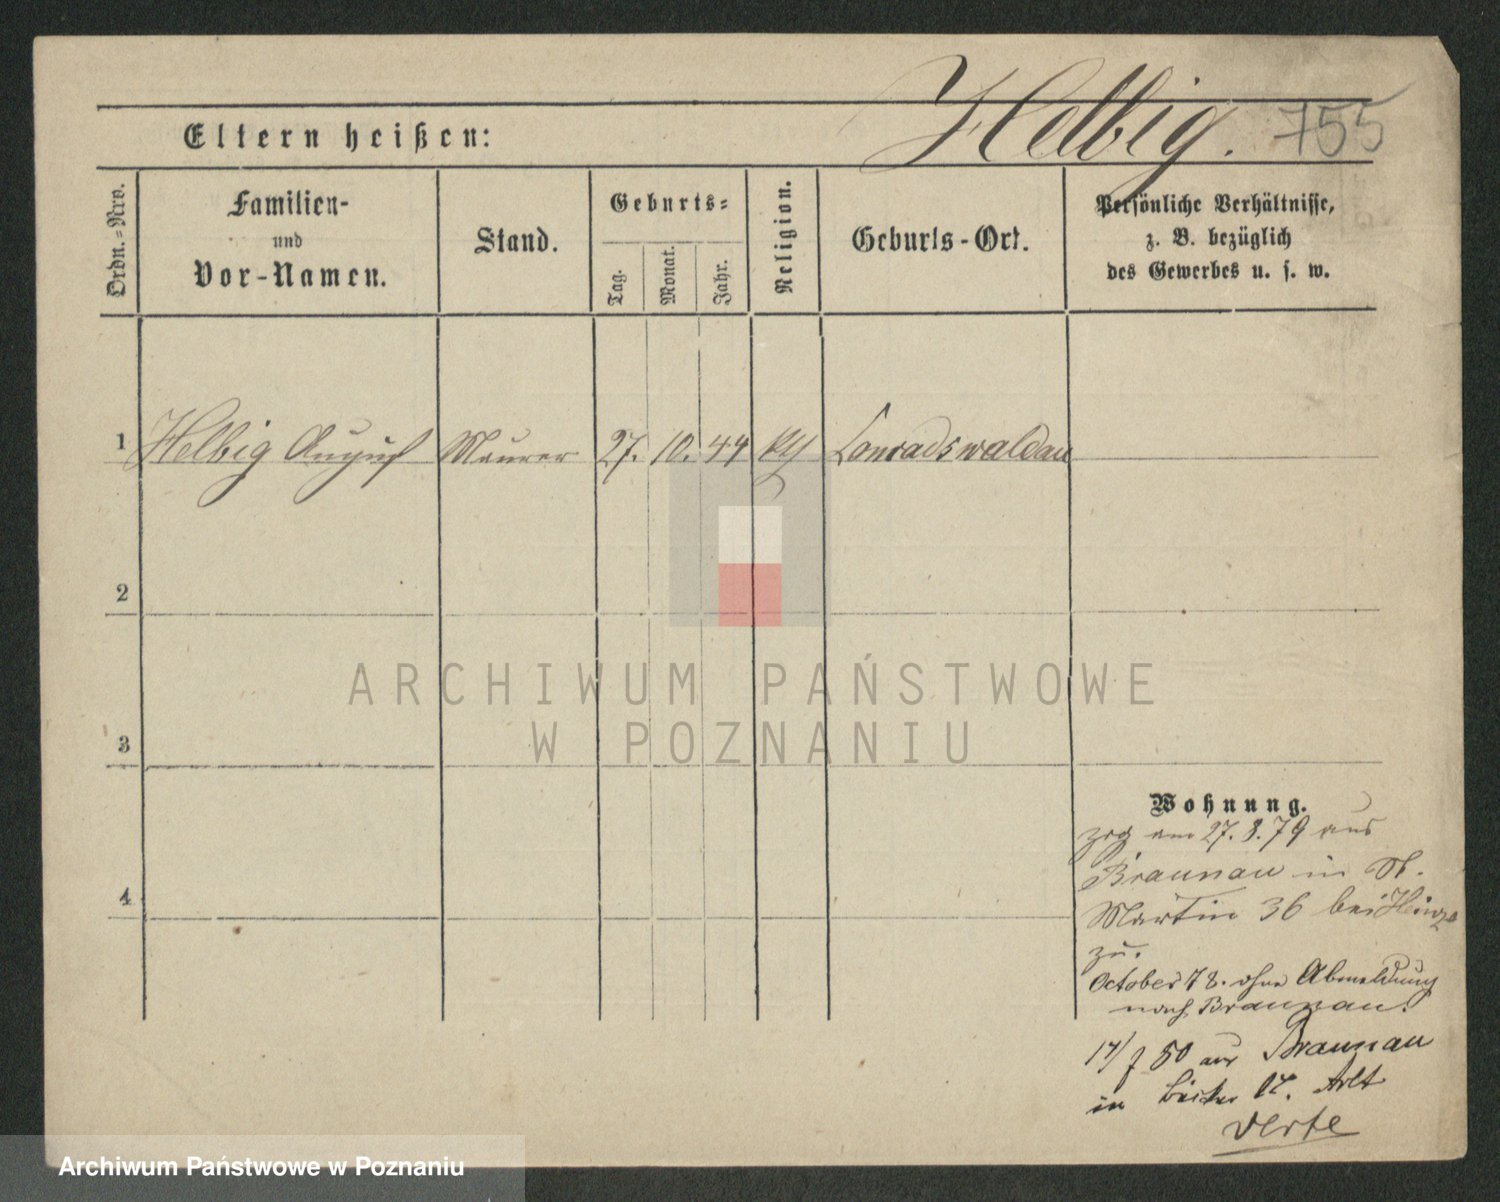 Helbig. 755
Eltern heißen:
Ordn.-Nro.
Familien-
und
Vor-Namen.
Stand.
Geburts-
Tag.
Monat.
Jahr.
Religion.
Geburts-Ort.
Persönliche Verhältnisse,
z. B. bezüglich
des Gewerbes u. s. w.
1 Helbig August Maurer 27. 10. 44 kth Conradswaldau
2
3
4
Wohnung.
zog am 27. 8. 79 aus
Braunau in St.
Martin 36 bei Heinze
zu.
October 78. ohne Abmeldung
nach Braunau.
14/ 80 aus Braunau
in Bäcker 17. Arlt
verte
ARCHIWUM PAŃSTWOWE
W POZNANIU
Archiwum Państwowe w Poznaniu